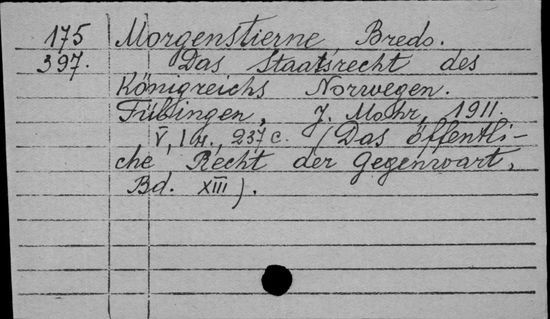 175 Morgenstierne Bredo.
397. Das Staatsrecht des
Königreichs Norwegen.
Tübingen, J. Mohr, 1911.
V, 1 н., 237 c. (Das öffentli-
che Recht der Gegenwart,
Bd. XIII).